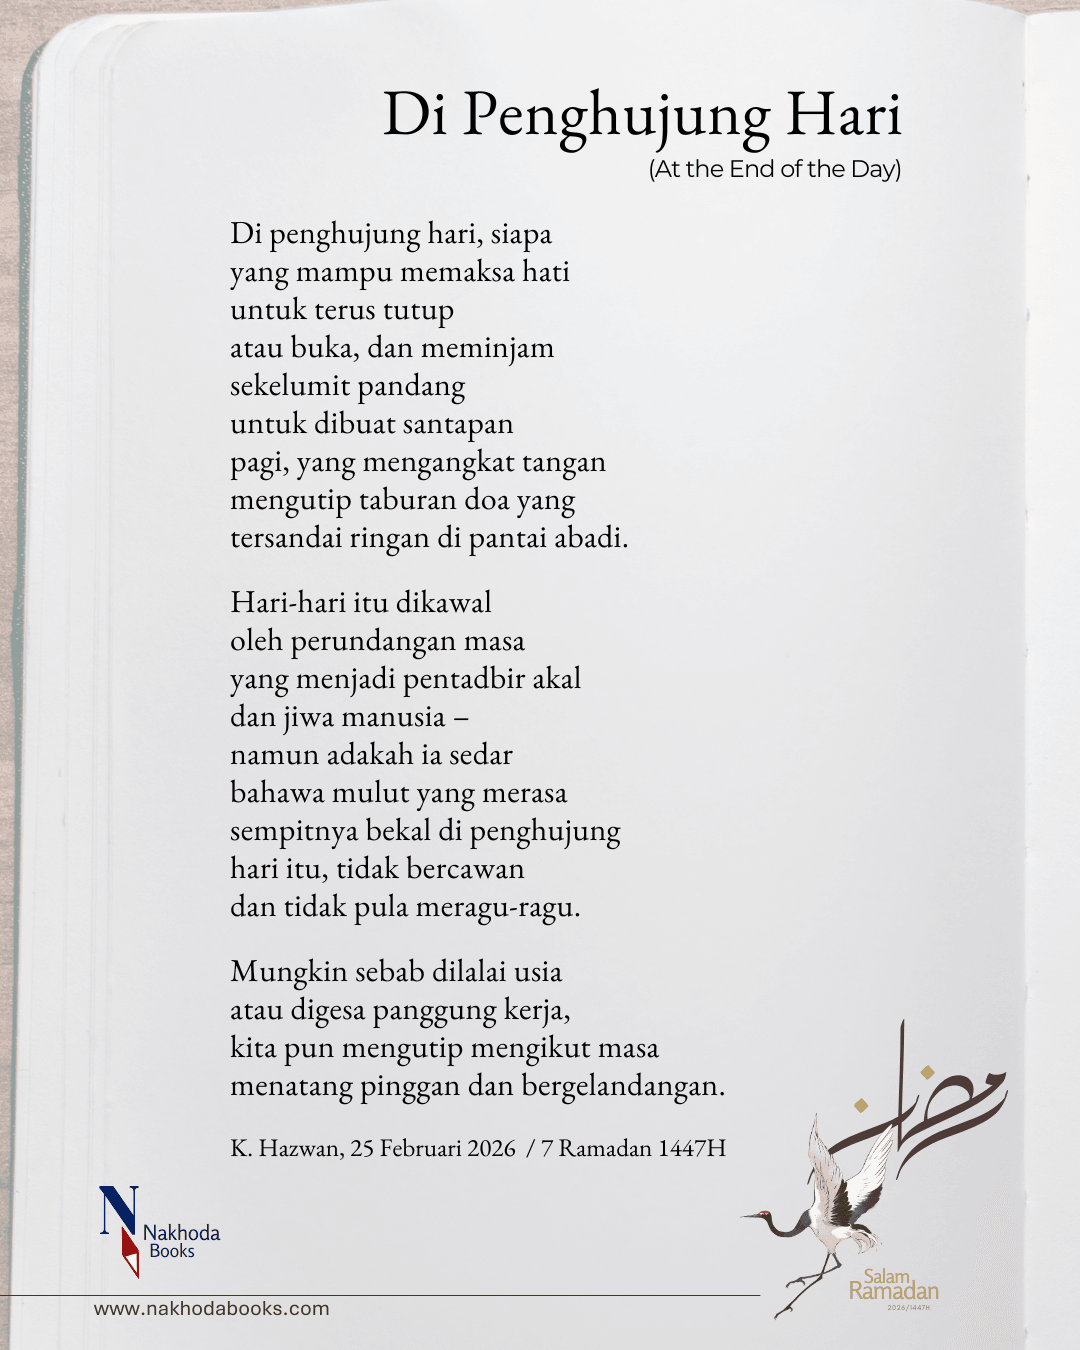 Di Penghujung Hari
(At the End of the Day)
Di penghujung hari, siapa
yang mampu memaksa hati
untuk terus tutup
atau buka, dan meminjam
sekelumit pandang
untuk dibuat santapan
pagi, yang mengangkat tangan
mengutip taburan doa yang
tersandai ringan di pantai abadi.
Hari-hari itu dikawal
oleh perundangan masa
yang menjadi pentadbir akal
dan jiwa manusia –
namun adakah ia sedar
bahawa mulut yang merasa
sempitnya bekal di penghujung
hari itu, tidak bercawan
dan tidak pula meragu-ragu.
Mungkin sebab dilalai usia
atau digesa panggung kerja,
kita pun mengutip mengikut masa
menatang pinggan dan bergelandangan.
K. Hazwan, 25 Februari 2026 / 7 Ramadan 1447H
رمضان
N
Nakhoda
Books
Salam
Ramadan
2026/1447H
www.nakhodabooks.com